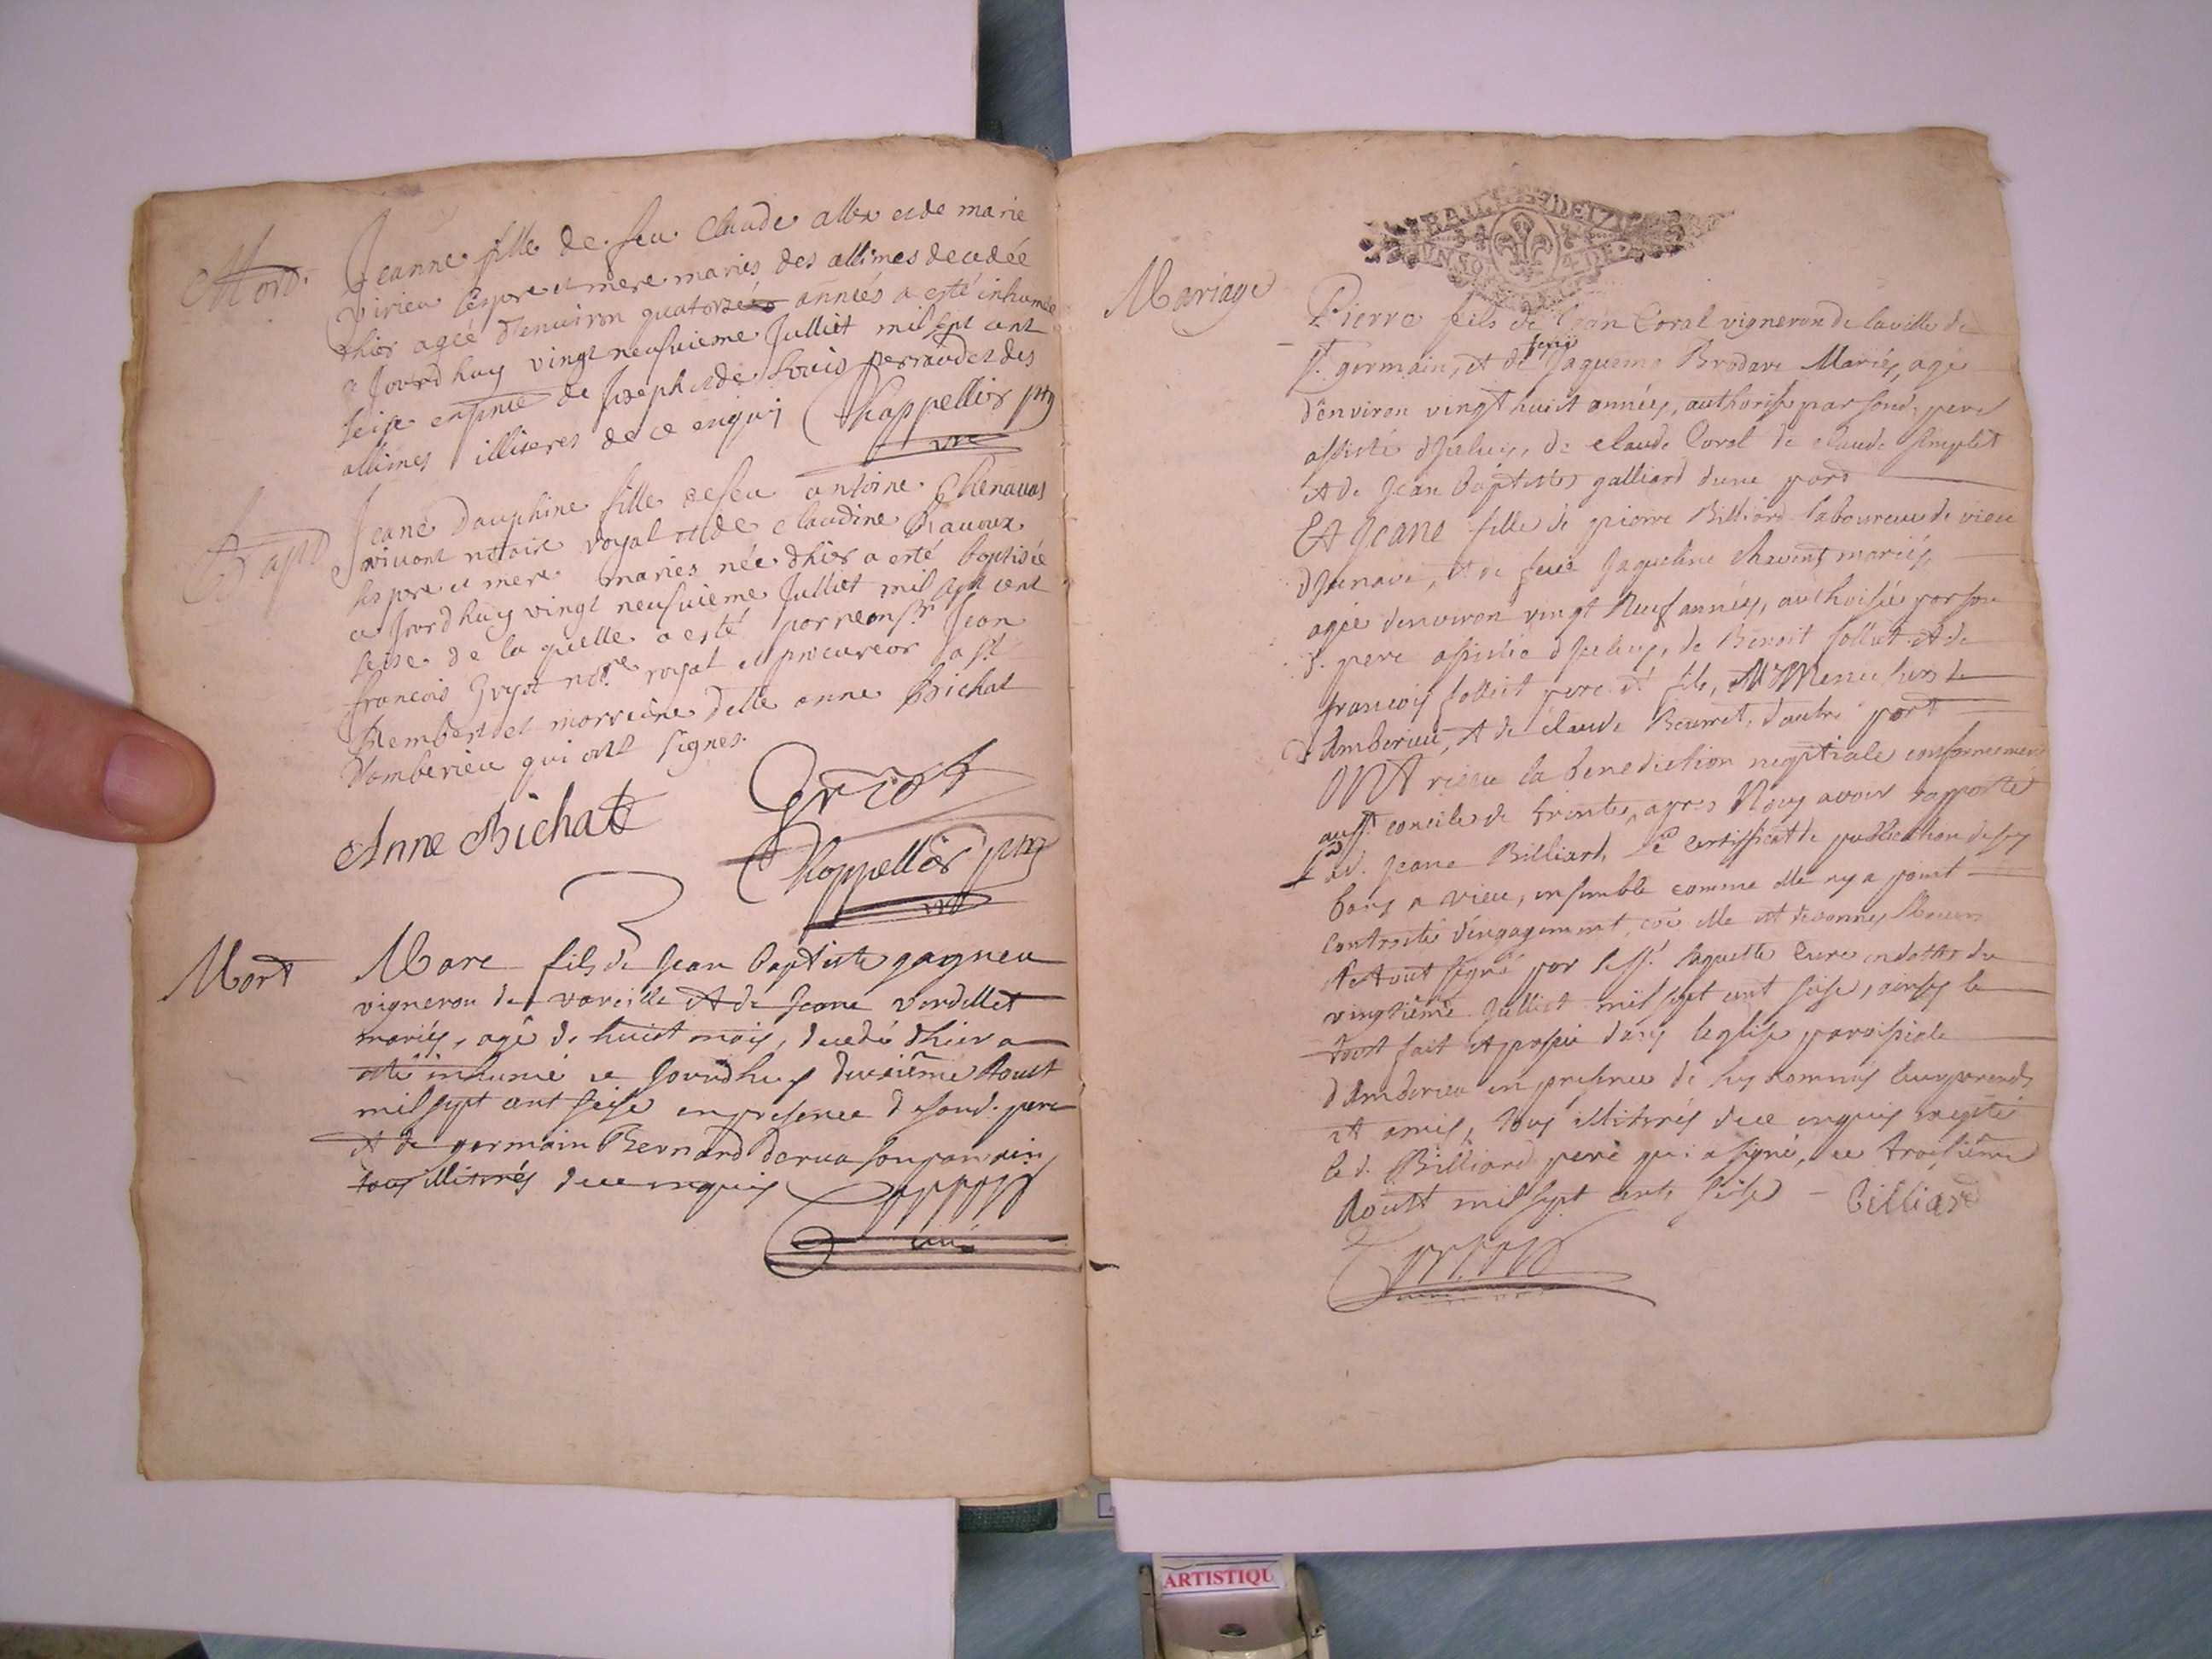 Mort.
Jeanne fille de feu Claude albx et de marie
virieu ses pere et mere mariés des allimes decedée
dhier agée d'enuiron quatorze années a esté inhumée
a Jourdhuy vingt neufuieme Julliet mil sept cent
seise en presence de Joseph et de Louis perraudet des
allimes illiteres de ce enquis Chappellier ptre
vre
Bapt
Jeane Dauphine fille de feu antoine Chenauas
viuant notaire royal et de Claudine Rauoux
ses pere et mere mariés née dhier a esté baptisée
a Jourdhuy vingt neufuieme Julliet mil sept cent
seise de la quelle a esté parrein Sr Jean
francois Guyot nore royal et procureur a St
Rembert et marreine Delle anne Bichat
d'amberieu qui ont signes.
Anne Bichat
Guiot
Chappellier ptre
vre
Mort
Marc fils de Jean baptiste gagneu
vigneron de vareille et de Jeane verdellet
mariés, agé de huict mois, decedé dhier a
esté inhumé ce Jourdhuy deuxiême Aoust
mil sept cent seise en presence de sond. pere
et de germain Bernard derua son parrein
tous illiterés de ce enquis
curé
Mariage
Pierre fils de Jean Coral vigneron de la ville de
St. germain, et de feue Jaquemo Brodare Mariés, agé
d'environ vingt huict années, authorisé par sond. pere
assisté d'jceluy, de claude Coral de claude simplet
et de Jean baptiste galliard d'une part
Et Jeane fille de pierre Billiard laboureur de vieu
d'Jzenave, et de feue Jaqueline Chavent mariés,
agée d'environ vingt Neuf années, authorisée par son
d. pere assistée d'jceluy, de Benoit follict et de
francois follict pere et fils, Mre Menuisiers de
d'Amberieu, et de claude Beurret, d'autre part
ONT receu la benediction nuptiale conformement
au St. concile de trente, apres Nous avoir rapporté
lad. Jeane Billiard, le certifficat de publication de ses
bans a vieu, ensemble comme elle ny a point
contracté d'engagement, coe elle est de bonnes Moeurs
le tout signé par le Sr. laguette Curé en datte du
vingtiême Julliet mil sept cent seise, ainsy le
tout fait et passé dans leglise paroissiale
d'Amberieu en presence de susnommés leurs parends
et amis, tous illiterés de ce enquis excepté
led. Billiard pere qui a signé, ce troisiême
Aoust mil sept cent seise - billiard
ARTISTIQU